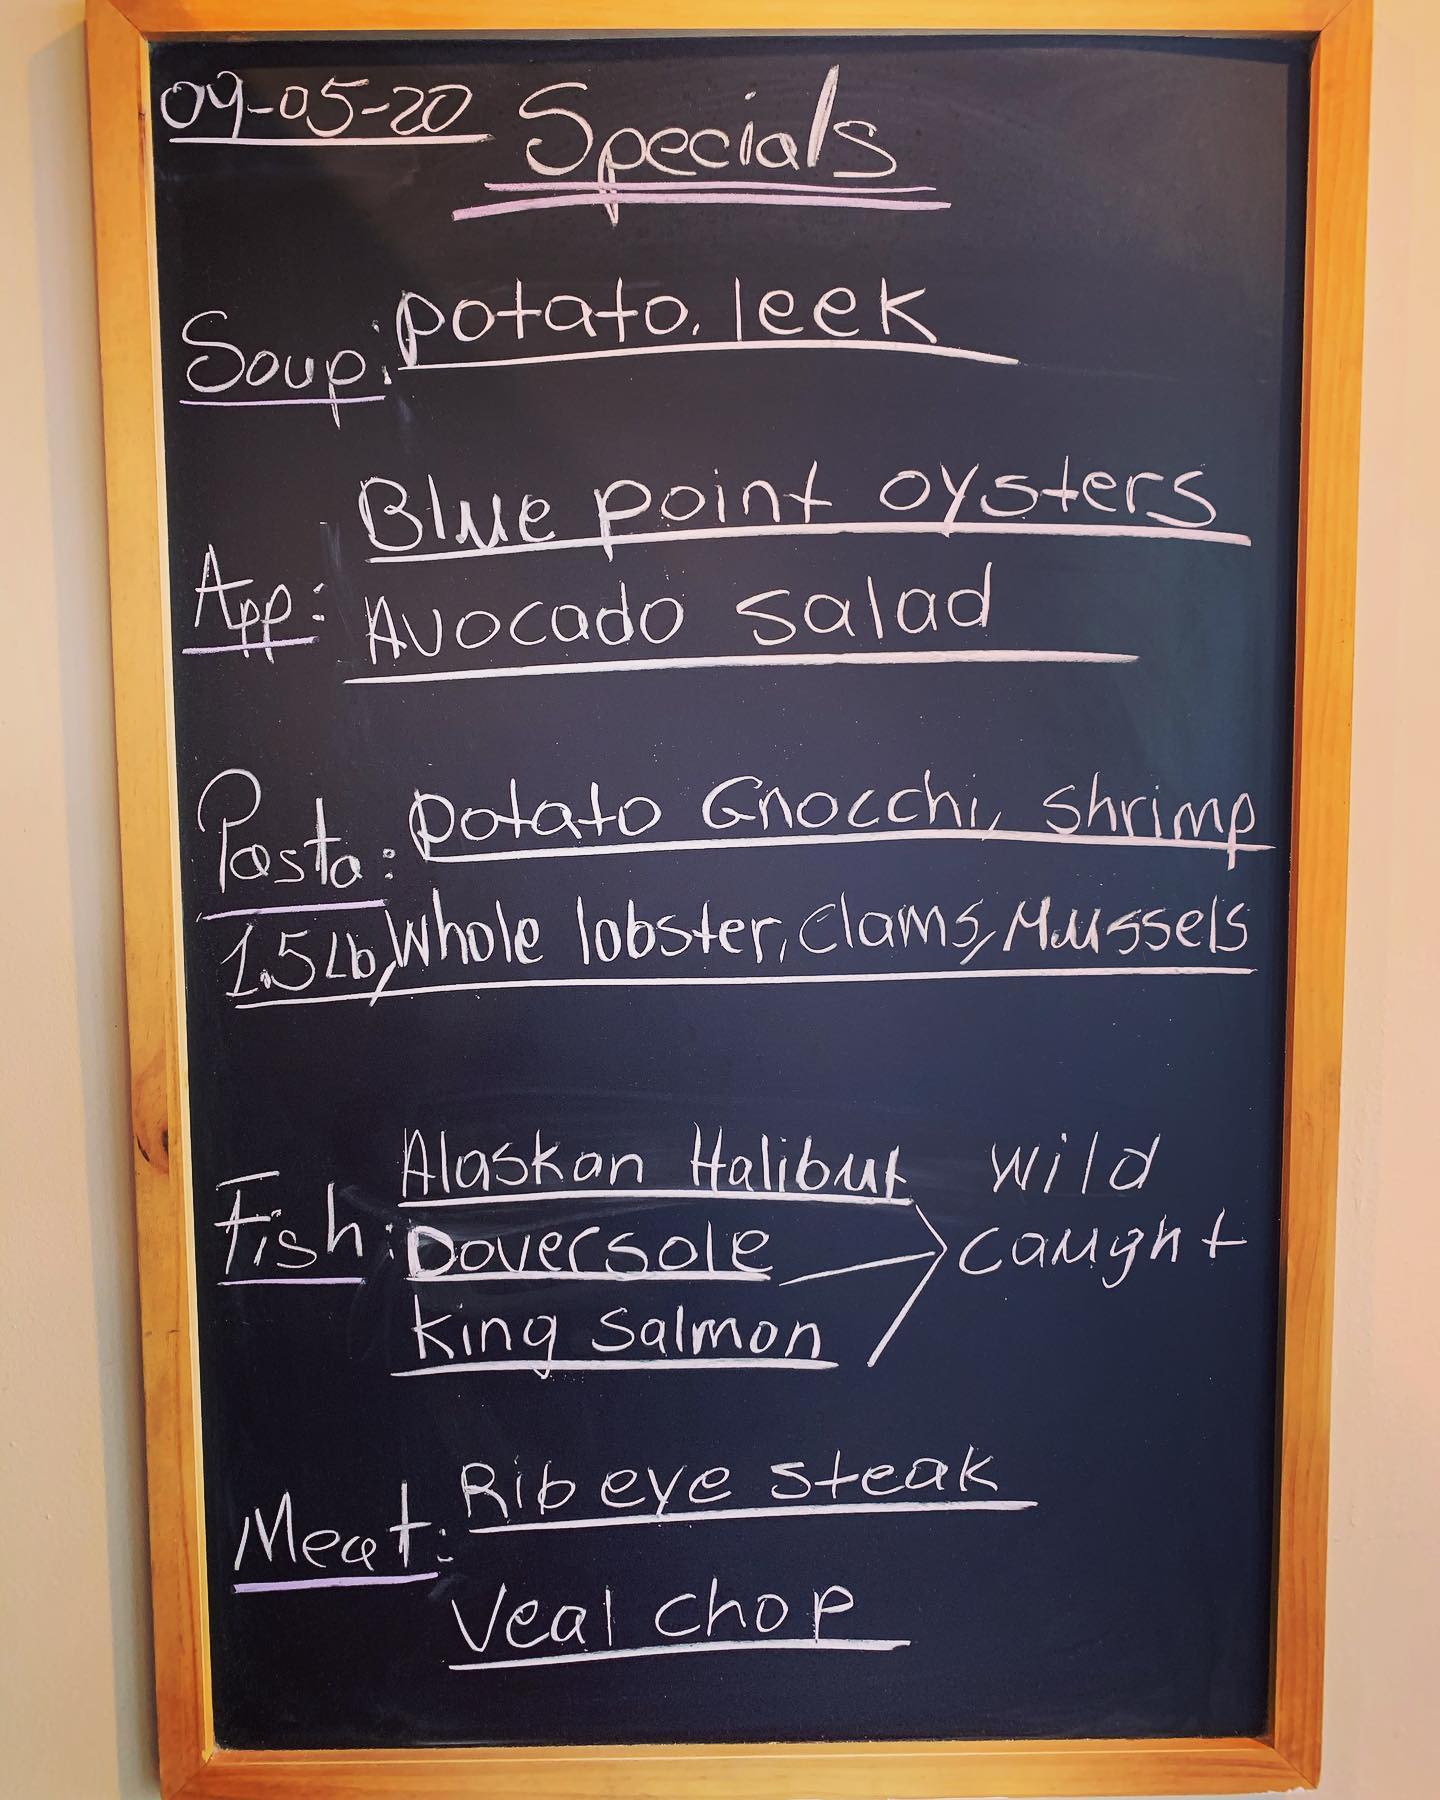 09-05-20 Specials
Soup: potato. leek
App: Blue point oysters
Avocado salad
Pasta: potato Gnocchi, shrimp
1.5 Lb, Whole lobster, clams, Mussels
Fish: Alaskan Halibut wild
Doversole caught
king salmon
Meat: Rib eye steak
Veal chop